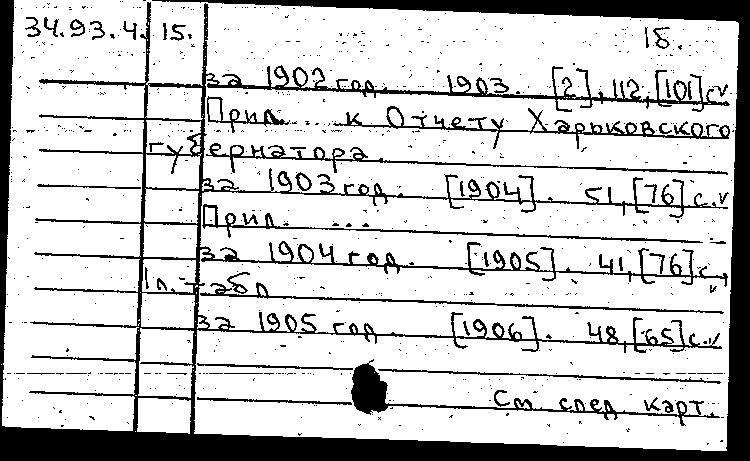 34.93.4. 15. 18.
за 1902 год. 1903. [2], 112, [101] с
Прил. к Отчету Харьковского
губернатора.
за 1903 год. [1904]. 51, [76] с.
Прил. ...
за 1904 год. [1905]. 41, [76] с,
1 л. табл
за 1905 год. [1906]. 48, [65] с.
См след карт.